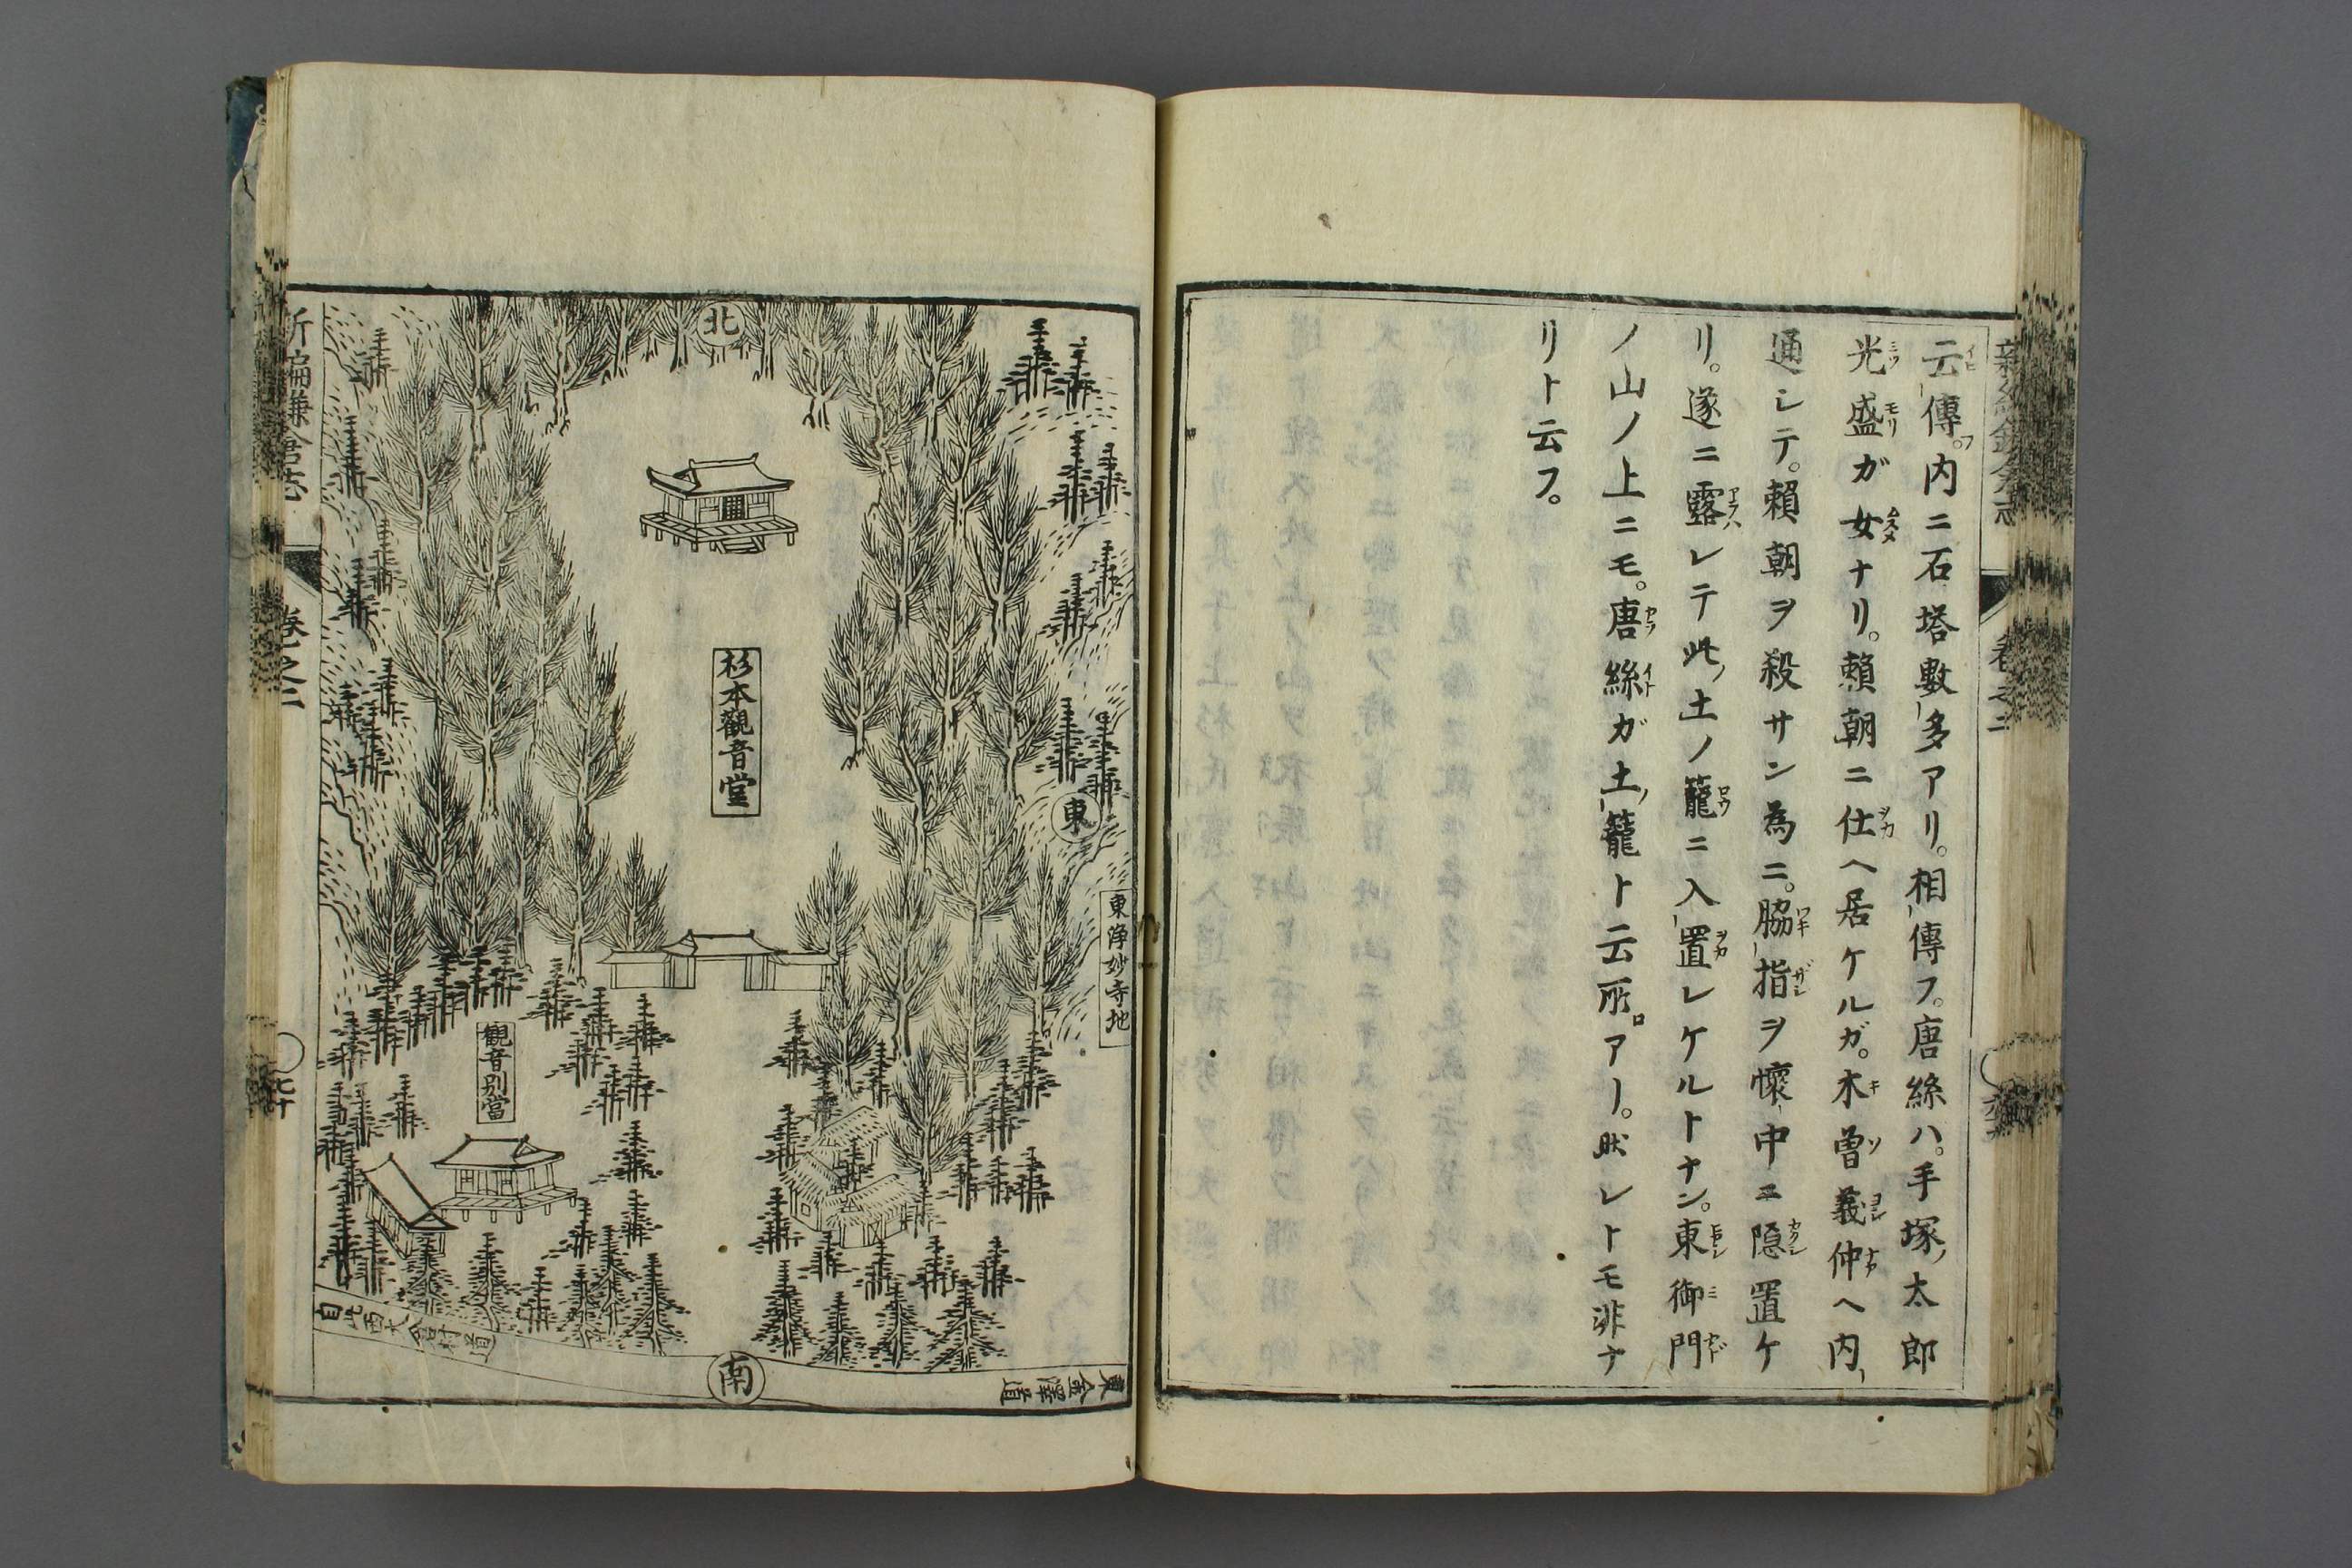 云傳フ。内ニ石塔數多アリ。相傳フ。唐絲ハ。手塚ノ太郎
光盛ガ女ナリ。頼朝ニ仕ヘ居ケルガ。木曽義仲ヘ内
通シテ。頼朝ヲ殺サン為ニ。脇指ヲ懷中ニ隠置ケ
リ。遂ニ露レテ此ノ土ノ籠ニ入置レケルトナン。東御門
ノ山ノ上ニモ。唐絲ガ土ノ籠ト云所アリ。然レトモ非ナ
リト云フ。
北
杉本觀音堂
東
東淨妙寺地
觀音別當
南
東金澤道
自此西大倉村道
新編鎌倉志
卷之二